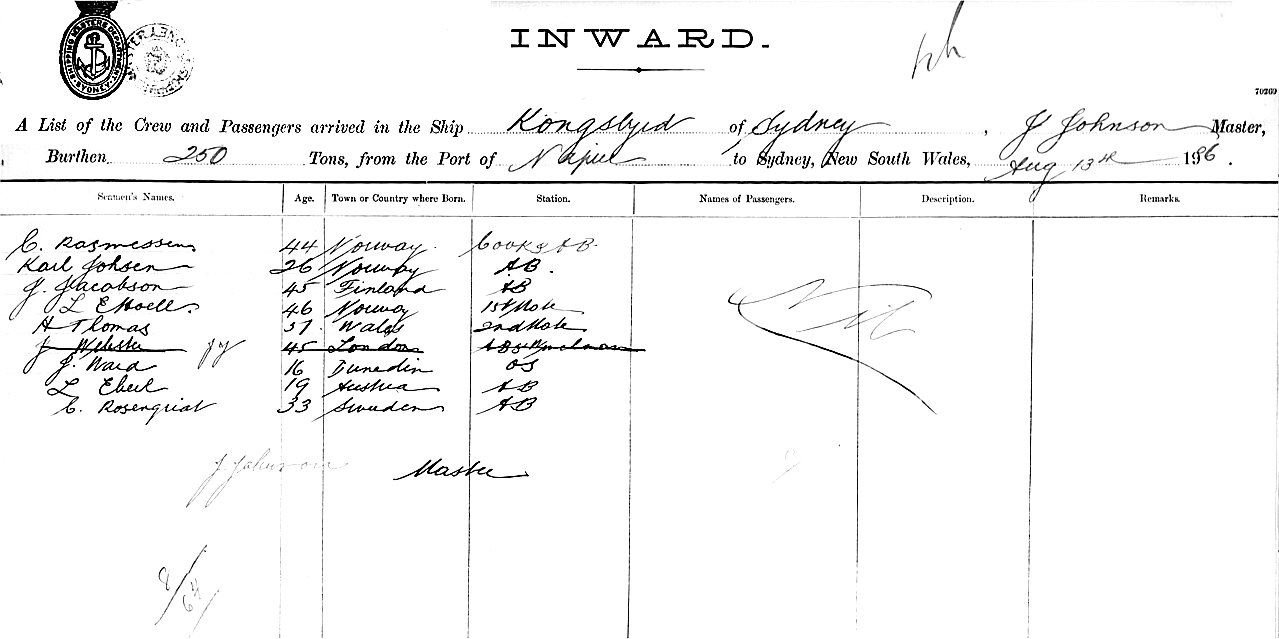 SHIPPING MASTERS DEPARTMENT. SYDNEY.
INWARD.
70269
A List of the Crew and Passengers arrived in the Ship Kongsbyrd of Sydney, J Johnson Master,
Burthen 250 Tons, from the Port of Napier to Sydney, New South Wales, Aug 13th 1986.
Seamen's Names. Age. Town or Country where Born. Station. Names of Passengers. Description. Remarks.
C. Rasmessen 44 Norway. Cook & AB.
Karl Johsen 26 Norway AB.
J. Jacobson 45 Finland AB
L E Moell. 46 Norway 1st Mate
H Thomas 37. Wales 2nd Mate
J Webster JJ 45 London AB &
J. Ward 16 Dunedin OS
L Eberl 19 Austria AB
C. Rosenqvist 33 Sweden AB
Nil
J Johnson Master
8/64/